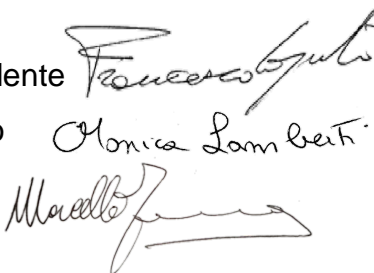 lente Francesco
o Monica Lamberti
Marcello